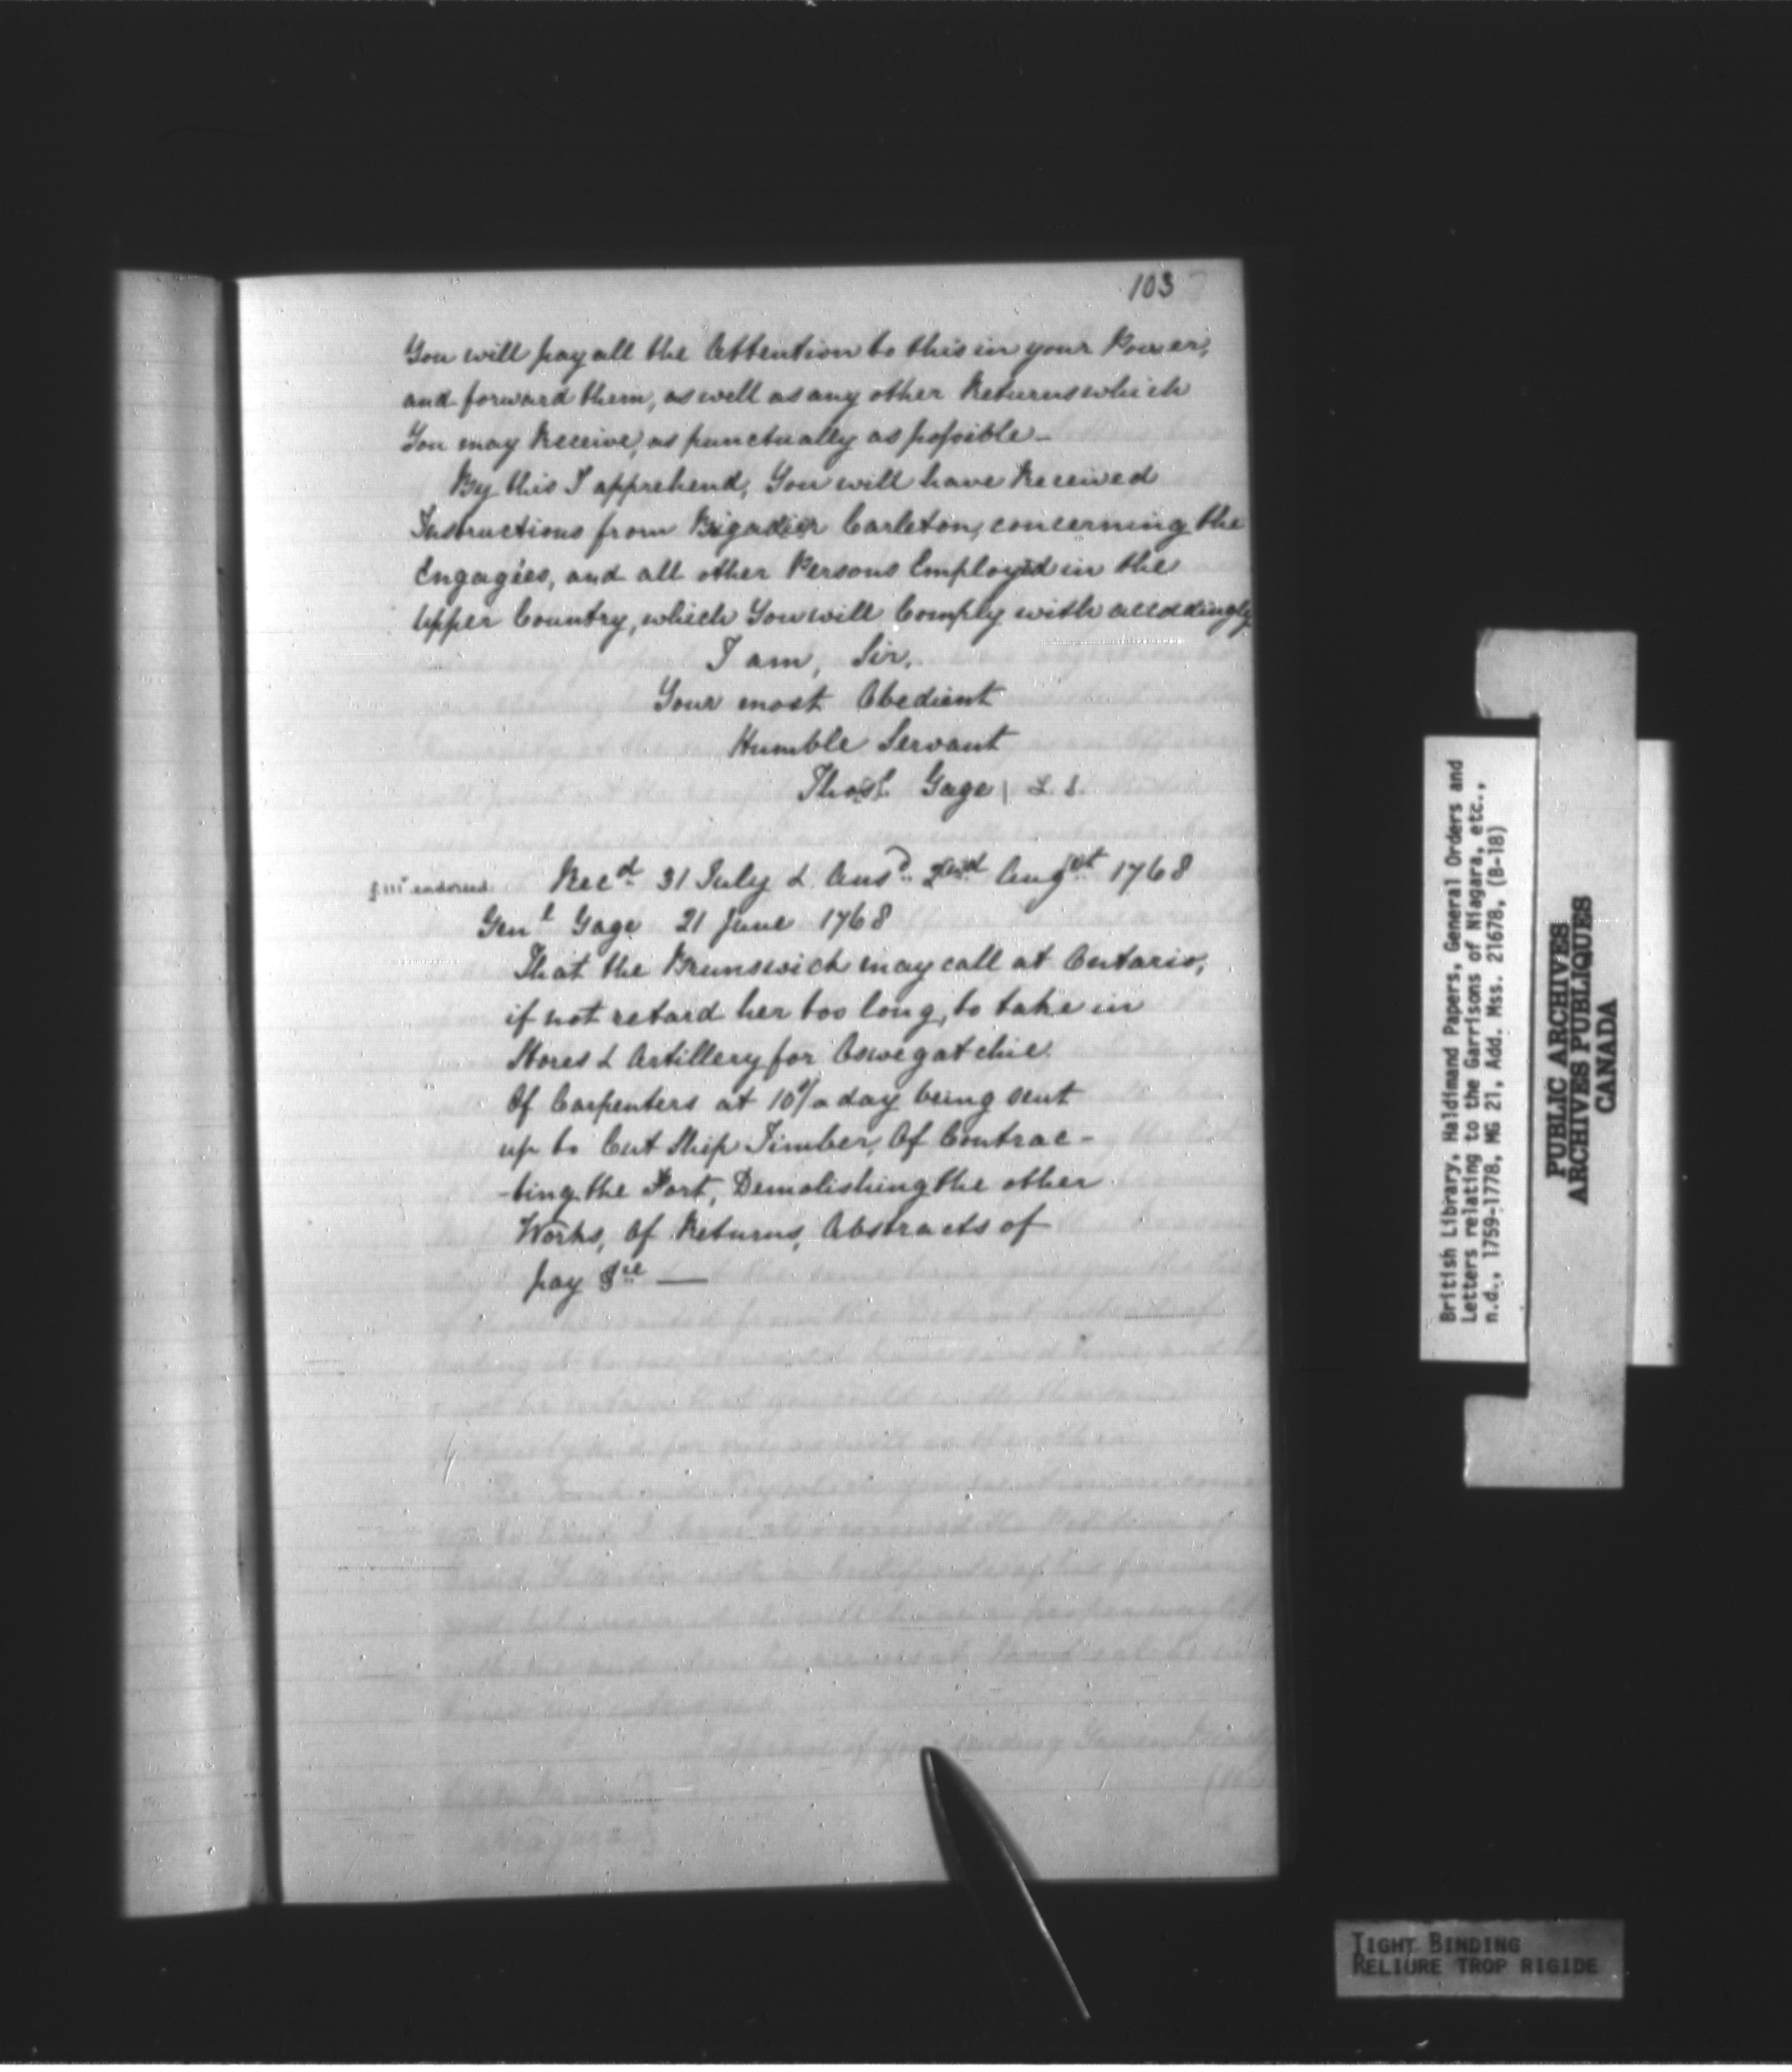 103
You will pay all the Attention to this in your Power,
and forward them, as well as any other Returns which
You may Receive, as punctually as possible_
By this I apprehend, You will have Received
Instructions from Brigadier Carleton, concerning the
Engagées, and all other Persons Employed in the
Upper Country, which You will Comply with accordingly
I am, Sir,
Your most Obedient
Humble Servant
Thos. Gage | L. S.
endorsed Recd 31 July & Ansd 2nd Augst 1768
Genl Gage 21 June 1768
That the Brunswick may call at Ontario,
if not retard her too long, to take in
Stores & Artillery for Oswegatchie.
Of Carpenters at 10/ a day being sent
up to Cut Ship Timber, Of Contrac-
-ting the Fort, Demolishing the other
Works, Of Returns, Abstracts of
pay &ce —
British Library, Haldimand Papers, General Orders and
Letters relating to the Garrisons of Niagara, etc.,
n.d., 1759-1778, MG 21, Add. Mss. 21678, (B-18)
PUBLIC ARCHIVES
ARCHIVES PUBLIQUES
CANADA
TIGHT BINDING
RELIURE TROP RIGIDE